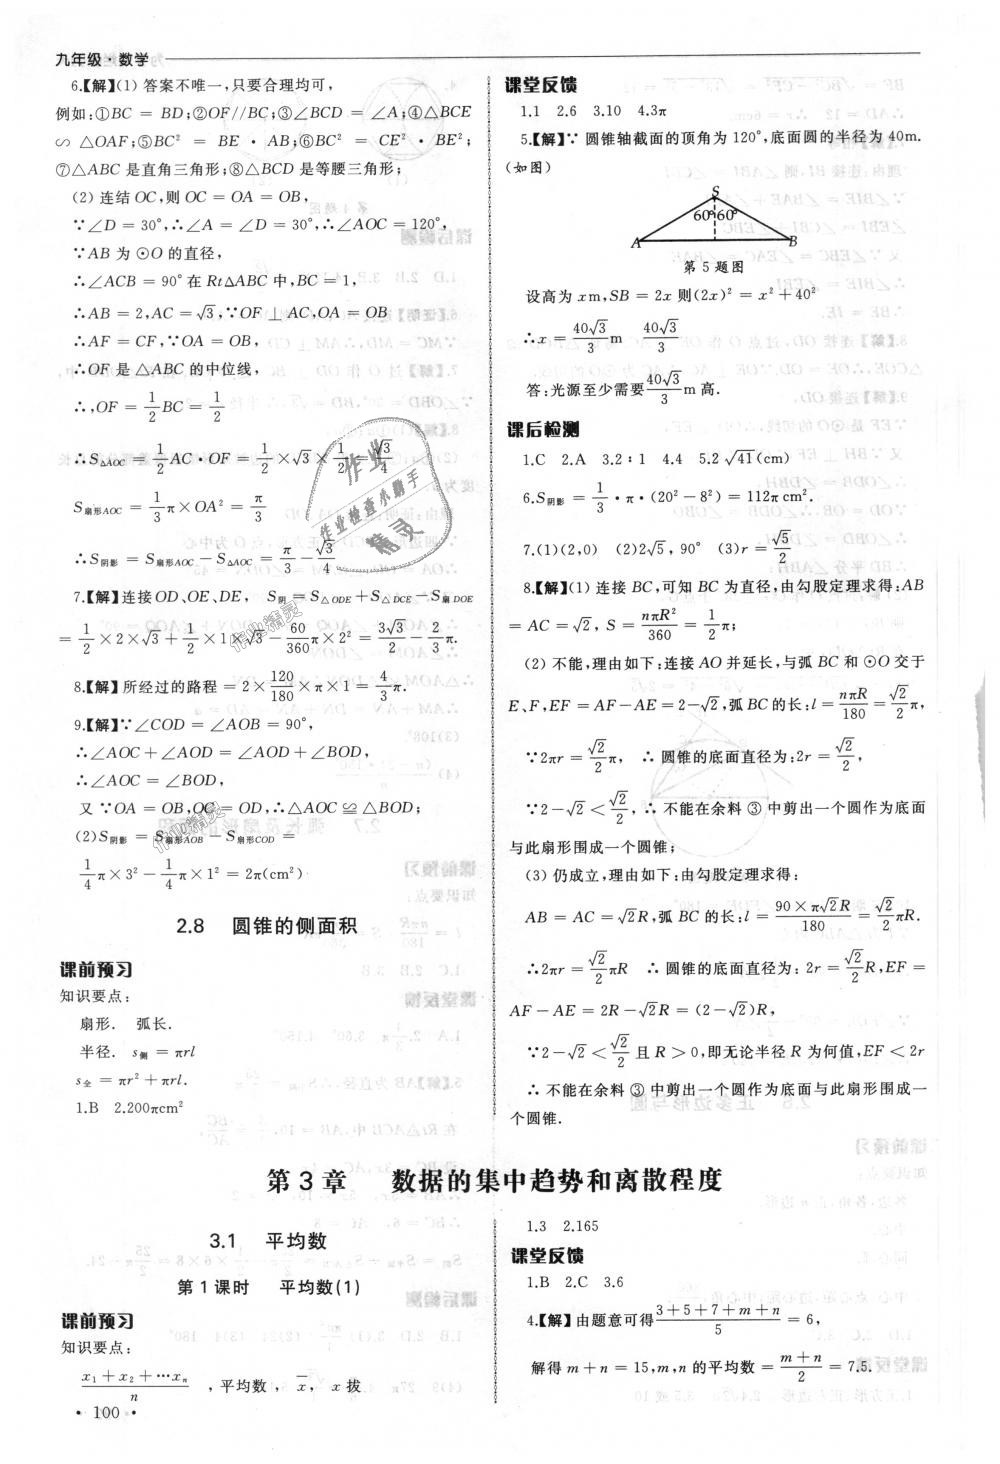 九年级·数学
6.【解】(1) 答案不唯一,只要合理均可,
例如:①BC = BD;②OF//BC;③∠BCD = ∠A;④△BCE
∽ △OAF;⑤BC² = BE · AB;⑥BC² = CE² · BE²;
⑦△ABC 是直角三角形;⑧△BCD 是等腰三角形;
(2) 连结 OC,则 OC = OA = OB,
∵∠D = 30°,∴∠A = ∠D = 30°,∴∠AOC = 120°,
∵AB 为 ⊙O 的直径,
∴∠ACB = 90° 在 Rt△ABC 中,BC = 1,
∴AB = 2,AC = √3,∵OF ⊥ AC,OA = OB
∴AF = CF,∵OA = OB,
∴OF 是 △ABC 的中位线,
∴,OF = 1/2 BC = 1/2
∴S△AOC = 1/2 AC · OF = 1/2 × √3 × 1/2 = √3/4
S扇形AOC = 1/3 π × OA² = π/3
∴S阴影 = S扇形AOC − S△AOC = π/3 − √3/4
7.【解】连接 OD、OE、DE, S阴 = S△ODE + S△DCE − S扇DOE
= 1/2 × 2 × √3 + 1/2 × 1 × √3 − 60/360 π × 2² = 3√3/2 − 2/3 π.
8.【解】所经过的路程 = 2 × 120/180 × π × 1 = 4/3 π.
9.【解】∵∠COD = ∠AOB = 90°,
∴∠AOC + ∠AOD = ∠AOD + ∠BOD,
∴∠AOC = ∠BOD,
又 ∵OA = OB,OC = OD,∴△AOC ≌ △BOD;
(2)S阴影 = S扇形AOB − S扇形COD =
1/4 π × 3² − 1/4 π × 1² = 2π(cm²)
2.8 圆锥的侧面积
课前预习
知识要点:
扇形. 弧长.
半径. s侧 = πrl
s全 = πr² + πrl.
1.B 2.200πcm²
课堂反馈
1.1 2.6 3.10 4.3π
5.【解】∵ 圆锥轴截面的顶角为 120°,底面圆的半径为 40m.
(如图)
S
60° 60°
A B
第 5 题图
设高为 x m,SB = 2x 则(2x)² = x² + 40²
∴x = 40√3/3 m 40√3/3
答:光源至少需要 40√3/3 m 高.
课后检测
1.C 2.A 3.2∶1 4.4 5.2√41(cm)
6.S阴影 = 1/3 · π · (20² − 8²) = 112π cm².
7.(1)(2,0) (2)2√5,90° (3)r = √5/2
8.【解】(1) 连接 BC,可知 BC 为直径,由勾股定理求得:AB
= AC = √2,S = nπR²/360 = 1/2 π;
(2) 不能,理由如下:连接 AO 并延长,与弧 BC 和 ⊙O 交于
E、F,EF = AF − AE = 2 − √2,弧 BC 的长:l = nπR/180 = √2/2 π,
∵2πr = √2/2 π, ∴ 圆锥的底面直径为:2r = √2/2,
∵2 − √2 < √2/2, ∴ 不能在余料 ③ 中剪出一个圆作为底面
与此扇形围成一个圆锥;
(3) 仍成立,理由如下:由勾股定理求得:
AB = AC = √2R,弧 BC 的长:l = 90 × π√2R/180 = √2/2 πR.
∴2πr = √2/2 πR ∴ 圆锥的底面直径为: 2r = √2/2 R,EF =
AF − AE = 2R − √2R = (2 − √2)R,
∵2 − √2 < √2/2 且 R > 0,即无论半径 R 为何值,EF < 2r
∴ 不能在余料 ③ 中剪出一个圆作为底面与此扇形围成一
个圆锥.
第 3 章 数据的集中趋势和离散程度
3.1 平均数
第 1 课时 平均数(1)
课前预习
知识要点:
x₁ + x₂ + ⋯xₙ/n ,平均数, x̄, x 拔
1.3 2.165
课堂反馈
1.B 2.C 3.6
4.【解】由题意可得 3 + 5 + 7 + m + n/5 = 6,
解得 m + n = 15,m,n 的平均数 = m + n/2 = 7.5.
· 100 ·
作业
作业检查小助手
精灵
作业精灵
作业精灵